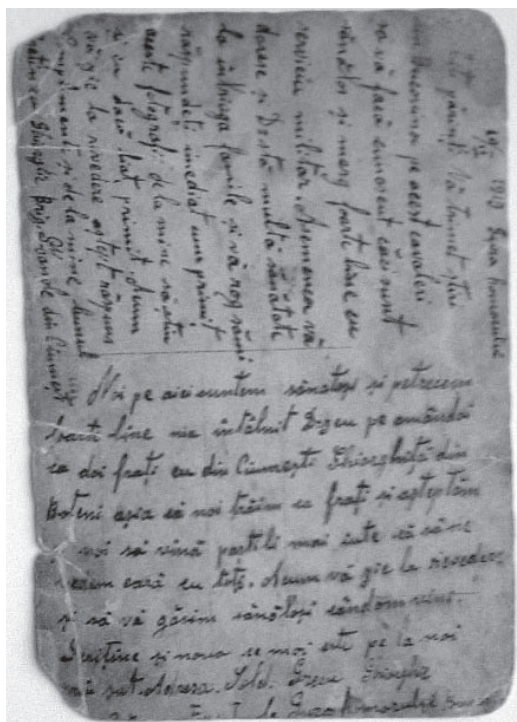 19 1919 Gura Homorului
părinți Vă trimet știri
din Bucovina pe acest cavaleri
sa vă facă cunoscut căci sunt
sănătos și merg foarte bine cu
serviciu militar. Asemenea vă
doresc și Dvstă multă sănătate
la întreaga familie și vă rog să-mi
răspundeți imediat cum primiți
aceste fotografii de la mine să știu
și eu dacă leați primit. Acum
vă zic la rivedere aștept răspuns
complimente și de la mine bunul
prietin cu Ghiorghe din Ciumești
Noi pe aici suntem sănătoși și petrecem
foarte bine nea întâlnit Dzeu pe amândoi
ca doi frați eu din Ciumești Ghiorghiță din
Boteni așia că noi trăim ca frați și așteptăm
și noi să vină partili mai iute că să ne
vedem eară cu toți. Acum vă zic la rivedere
și să vă găsim sănătoși cândom vini.
Scriține și noua ce mai este pe la noi
sat. Adresa. Sold. Grecu Ghiorghe
Gura Homorului